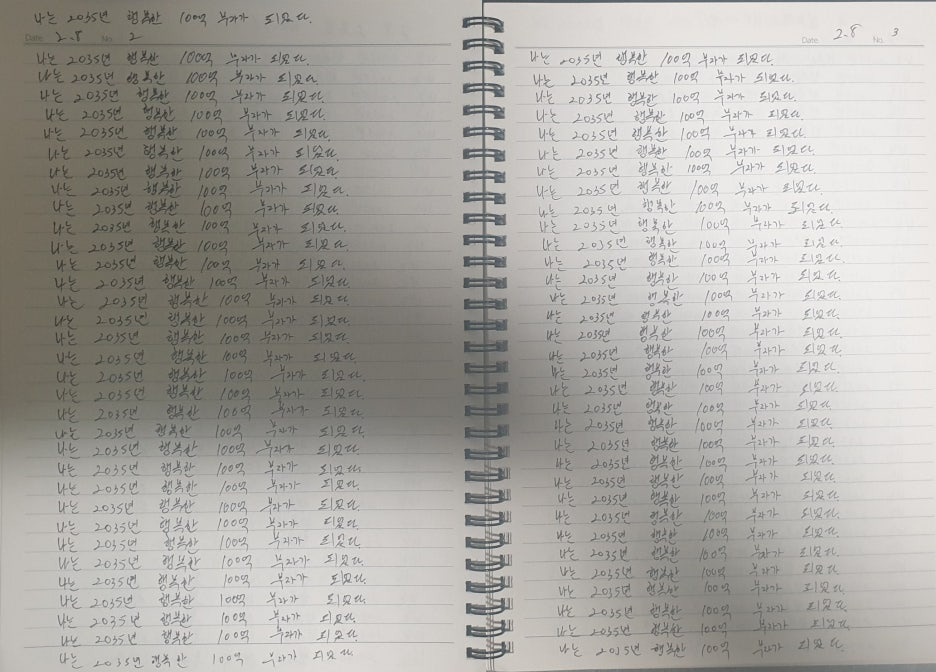 나는 2035년 행복한 100억 부자가 되었다.
Date 2.8 No. 2
나는 2035년 행복한 100억 부자가 되었다.
나는 2035년 행복한 100억 부자가 되었다.
나는 2035년 행복한 100억 부자가 되었다.
나는 2035년 행복한 100억 부자가 되었다.
나는 2035년 행복한 100억 부자가 되었다.
나는 2035년 행복한 100억 부자가 되었다.
나는 2035년 행복한 100억 부자가 되었다.
나는 2035년 행복한 100억 부자가 되었다.
나는 2035년 행복한 100억 부자가 되었다.
나는 2035년 행복한 100억 부자가 되었다.
나는 2035년 행복한 100억 부자가 되었다.
나는 2035년 행복한 100억 부자가 되었다.
나는 2035년 행복한 100억 부자가 되었다.
나는 2035년 행복한 100억 부자가 되었다.
나는 2035년 행복한 100억 부자가 되었다.
나는 2035년 행복한 100억 부자가 되었다.
나는 2035년 행복한 100억 부자가 되었다.
나는 2035년 행복한 100억 부자가 되었다.
나는 2035년 행복한 100억 부자가 되었다.
나는 2035년 행복한 100억 부자가 되었다.
나는 2035년 행복한 100억 부자가 되었다.
나는 2035년 행복한 100억 부자가 되었다.
나는 2035년 행복한 100억 부자가 되었다.
나는 2035년 행복한 100억 부자가 되었다.
나는 2035년 행복한 100억 부자가 되었다.
나는 2035년 행복한 100억 부자가 되었다.
나는 2035년 행복한 100억 부자가 되었다.
나는 2035년 행복한 100억 부자가 되었다.
나는 2035년 행복한 100억 부자가 되었다.
나는 2035년 행복한 100억 부자가 되었다.
나는 2035년 행복한 100억 부자가 되었다.
나는 2035년 행복한 100억 부자가 되었다.
나는 2035년 행복한 100억 부자가 되었다.
Date 2.8 No. 3
나는 2035년 행복한 100억 부자가 되었다.
나는 2035년 행복한 100억 부자가 되었다.
나는 2035년 행복한 100억 부자가 되었다.
나는 2035년 행복한 100억 부자가 되었다.
나는 2035년 행복한 100억 부자가 되었다.
나는 2035년 행복한 100억 부자가 되었다.
나는 2035년 행복한 100억 부자가 되었다.
나는 2035년 행복한 100억 부자가 되었다.
나는 2035년 행복한 100억 부자가 되었다.
나는 2035년 행복한 100억 부자가 되었다.
나는 2035년 행복한 100억 부자가 되었다.
나는 2035년 행복한 100억 부자가 되었다.
나는 2035년 행복한 100억 부자가 되었다.
나는 2035년 행복한 100억 부자가 되었다.
나는 2035년 행복한 100억 부자가 되었다.
나는 2035년 행복한 100억 부자가 되었다.
나는 2035년 행복한 100억 부자가 되었다.
나는 2035년 행복한 100억 부자가 되었다.
나는 2035년 행복한 100억 부자가 되었다.
나는 2035년 행복한 100억 부자가 되었다.
나는 2035년 행복한 100억 부자가 되었다.
나는 2035년 행복한 100억 부자가 되었다.
나는 2035년 행복한 100억 부자가 되었다.
나는 2035년 행복한 100억 부자가 되었다.
나는 2035년 행복한 100억 부자가 되었다.
나는 2035년 행복한 100억 부자가 되었다.
나는 2035년 행복한 100억 부자가 되었다.
나는 2035년 행복한 100억 부자가 되었다.
나는 2035년 행복한 100억 부자가 되었다.
나는 2035년 행복한 100억 부자가 되었다.
나는 2035년 행복한 100억 부자가 되었다.
나는 2035년 행복한 100억 부자가 되었다.
나는 2035년 행복한 100억 부자가 되었다.